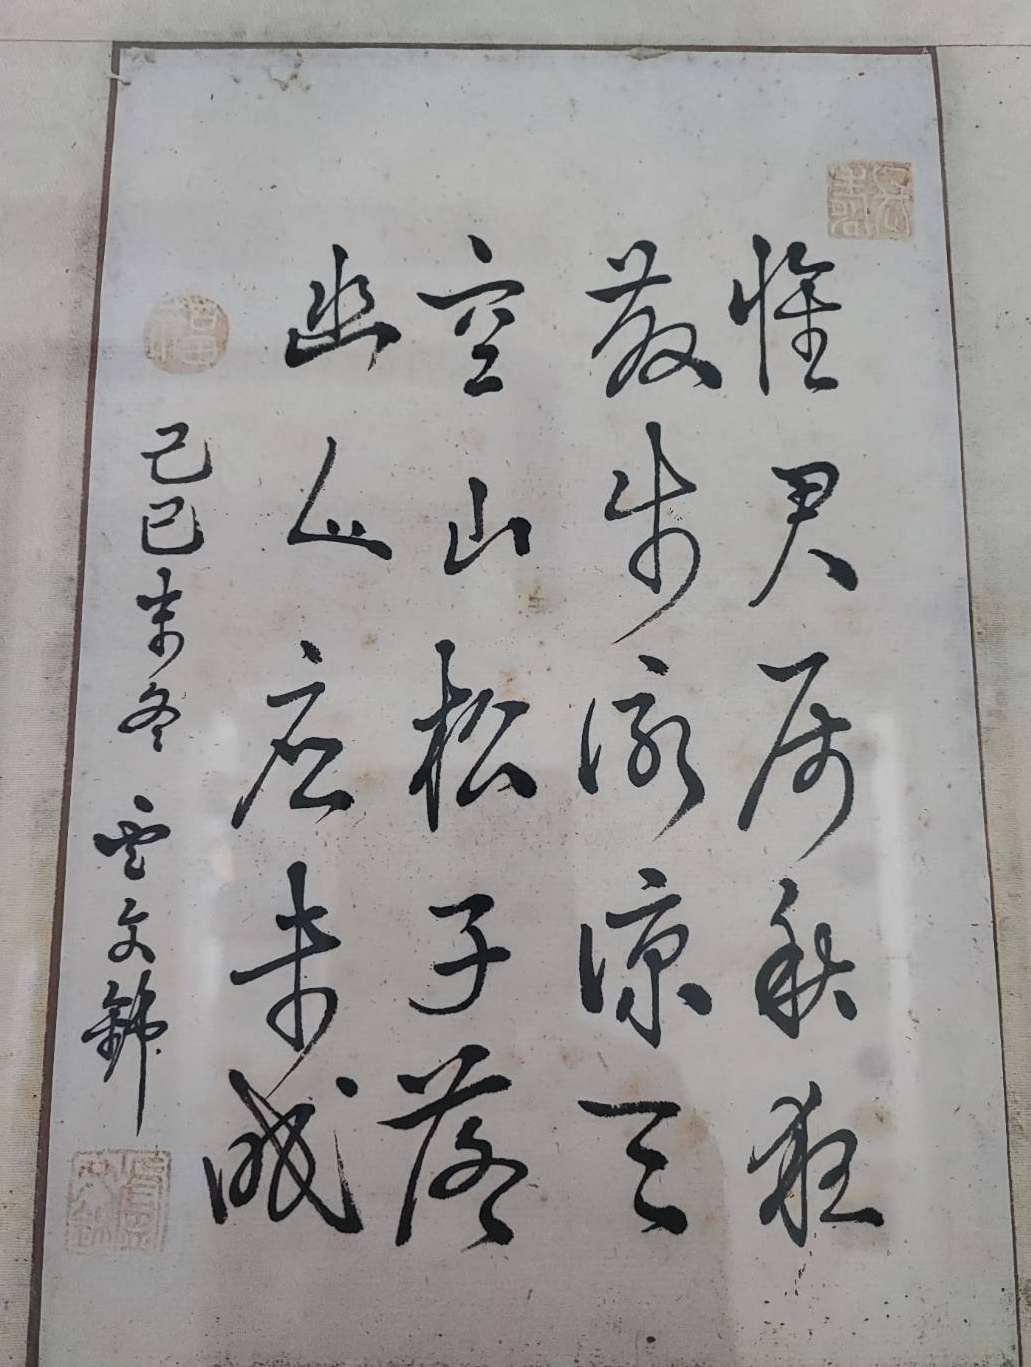 長壽
惟君属秋夜
散步詠凉天
空山松子落
幽人应未眠
福
己巳末冬 雲文錦